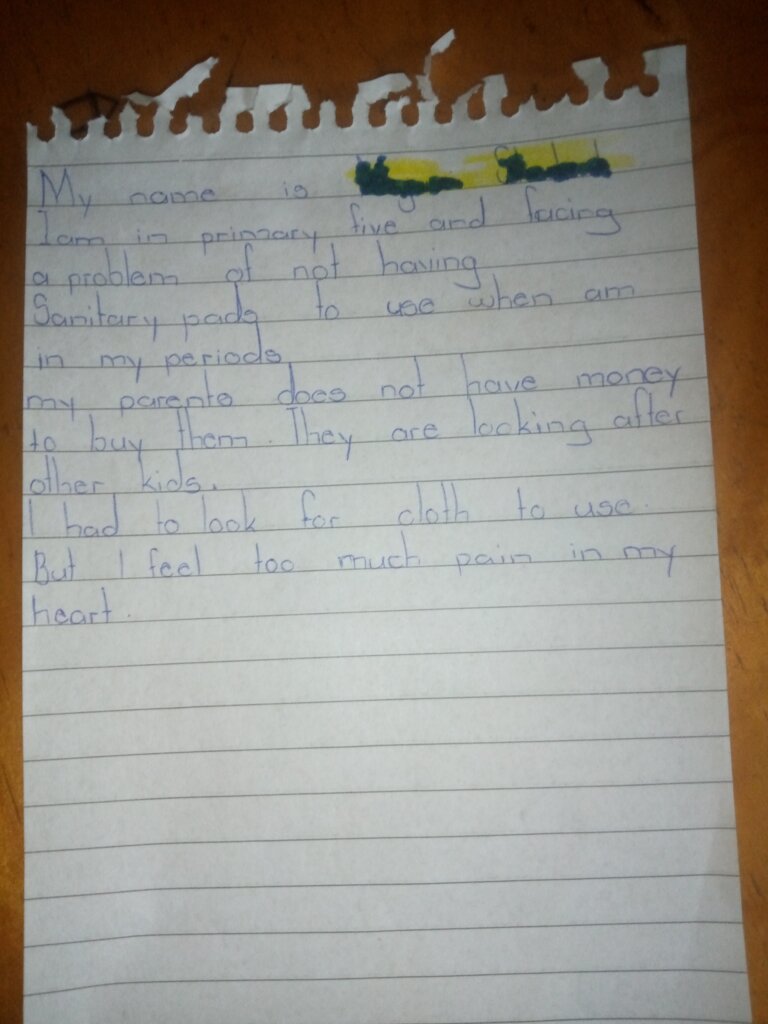 My name is
I am in primary five and facing
a problem of not having
Sanitary pads to use when am
in my periods
my parents does not have money
to buy them. They are looking after
other kids.
I had to look for cloth to use.
But I feel too much pain in my
heart.